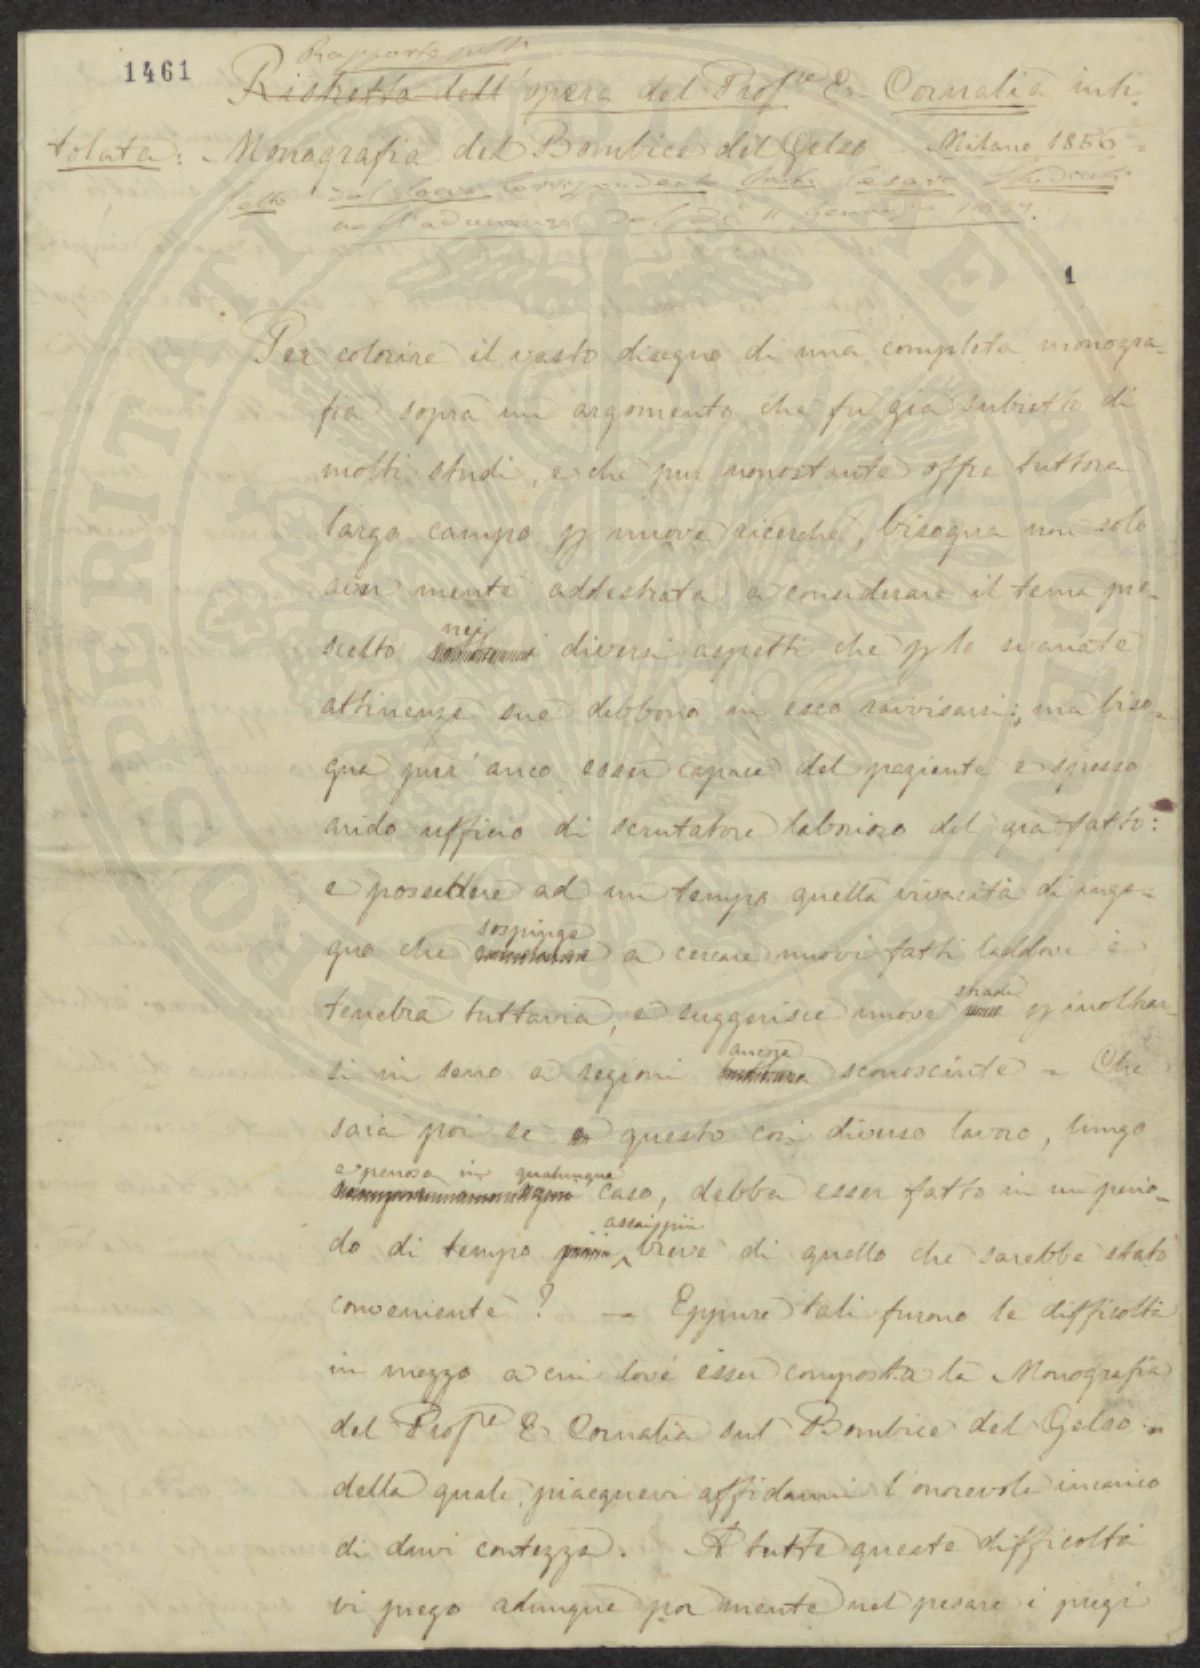 1461
Rapporto sull'
Ristretto dell' opera del Profre E. Cornalia inti-
tolata: Monografia del Bombice del Gelso - Milano 1856 -
letto dal Socio Corrispondente Cesare Studiati
nell'adunanza del dì 11 Gennajo 1857.
1
Per colorire il vasto disegno di una completa monogra-
fia sopra un argomento che fu già subietto di
molti studi, e che pur nonostante offre tuttora
largo campo p nuove ricerche, bisogna non solo
aver mente addestrata a considerare il tema pre-
scelto nei diversi aspetti che p le svariate
attinenze sue debbono in esso ravvisarsi; ma biso-
gna pur' anco esser capace del paziente e spesso
arido ufficio di scrutatore laborioso del già fatto:
e possedere ad un tempo quella vivacità di inge-
gno che sospinge a cercare nuovi fatti laddove è
tenebra tuttavia, e suggerisce nuove strade p inoltrar-
si in seno a regioni ancora sconosciute - Che
sarà poi se questo così diverso lavoro, lungo
e penoso in qualunque caso, debba esser fatto in un perio-
do di tempo assai più breve di quello che sarebbe stato
conveniente? - Eppure tali furono le difficoltà
in mezzo a cui dové esser composta la Monografia
del Profre E. Cornalia sul Bombice del Gelso -
della quale piacquevi affidarmi l'onorevole incarico
di darvi contezza. A tutte queste difficoltà
vi prego adunque por mente nel pesare i pregi
PROSPERITATI PUBLICAE AUGENDAE